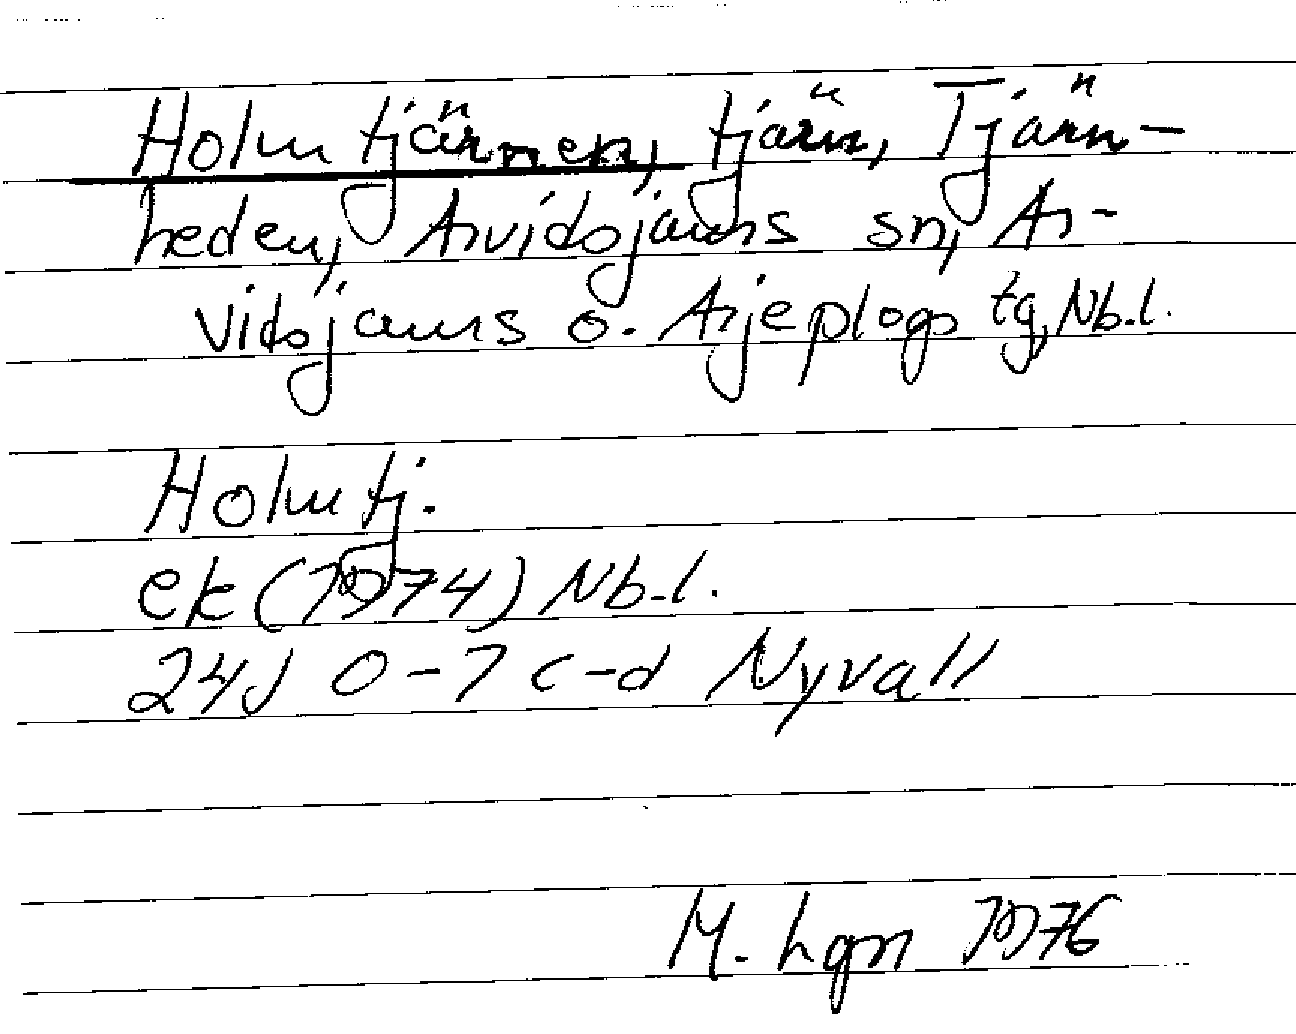 Holmtjärnen, tjärn, Tjärn-
heden, Arvidsjaurs sn, Ar-
vidsjaurs o. Arjeplogs tg, Nb.l.
Holmtj.
ek (1974) Nb.l.
24J 0-7 c-d Nyvall
M. Lgn 1976